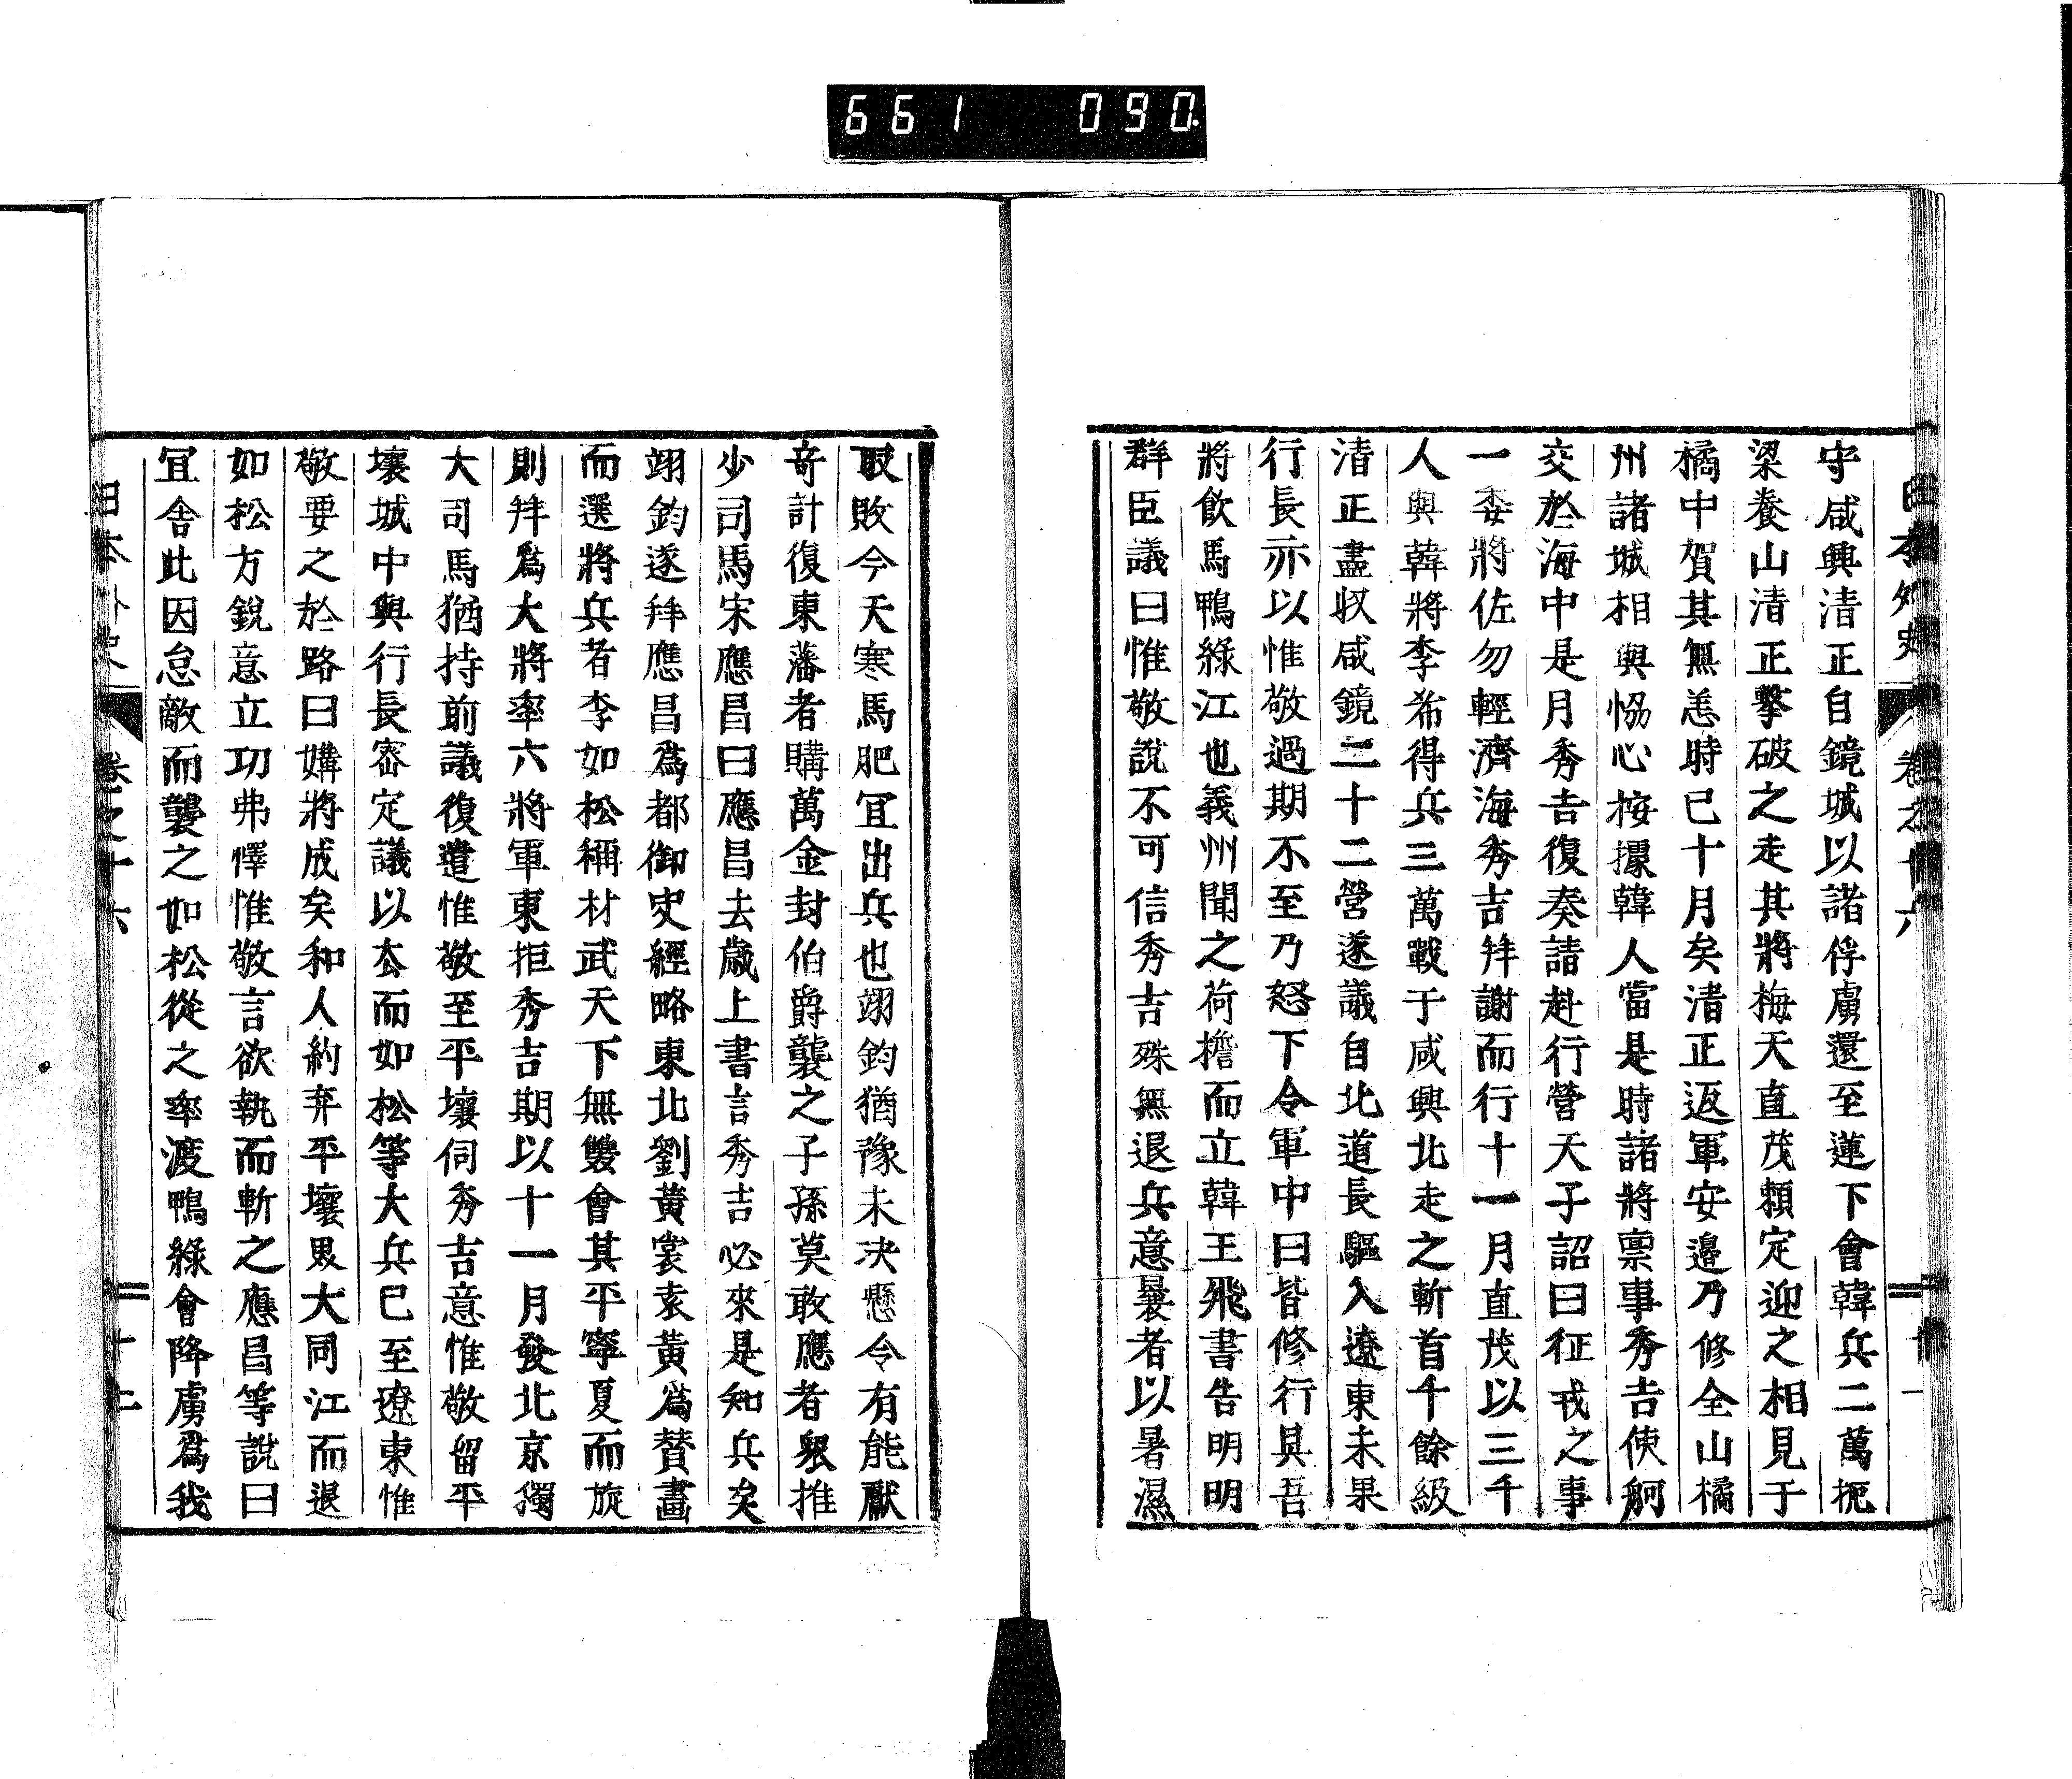 661 090
日本外史 卷之十六
守咸興清正自鏡城以諸俘虜還至蓮下會韓兵二萬扼
梁養山清正擊破之走其將梅天直茂賴定迎之相見于
橘中賀其無恙時已十月矣清正返軍安邊乃修全山橘
州諸城相與恊心桉攘韓人當是時諸將禀事秀吉使舸
交於海中是月秀吉復奏請赴行營天子詔曰征戎之事
一委將佐勿輕濟海秀吉拜謝而行十一月直茂以三千
人與韓將李希得兵三萬戰于咸興北走之斬首千餘級
清正盡收咸鏡二十二營遂議自北道長驅入遼東未果
行長亦以惟敬過期不至乃怒下令軍中曰皆修行具吾
將飲馬鴨綠江也義州聞之荷擔而立韓王飛書告明明
群臣議曰惟敬說不可信秀吉殊無退兵意曩者以暑濕
取敗今天寒馬肥冝出兵也翊鈞猶豫未決懸令有能獻
奇計復東藩者購萬金封伯爵襲之子孫莫敢應者衆推
少司馬宋應昌曰應昌去歲上書言秀吉必來是知兵矣
翊鈞遂拜應昌爲都御史經略東北劉黃裳袁黃爲贊畫
而選將兵者李如松稱材武天下無雙會其平寧夏而旋
則拜爲大將率六將軍東拒秀吉期以十一月發北京獨
大司馬猶持前議復遣惟敬至平壤伺秀吉意惟敬留平
壤城中與行長密定議以去而如松等大兵已至遼東惟
敬要之於路曰媾將成矣和人約弃平壤界大同江而退
如松方銳意立功弗懌惟敬言欲執而斬之應昌等說曰
冝舍此因怠敵而襲之如松從之率渡鴨綠會降虜爲我
日本外史 卷之十六 十二